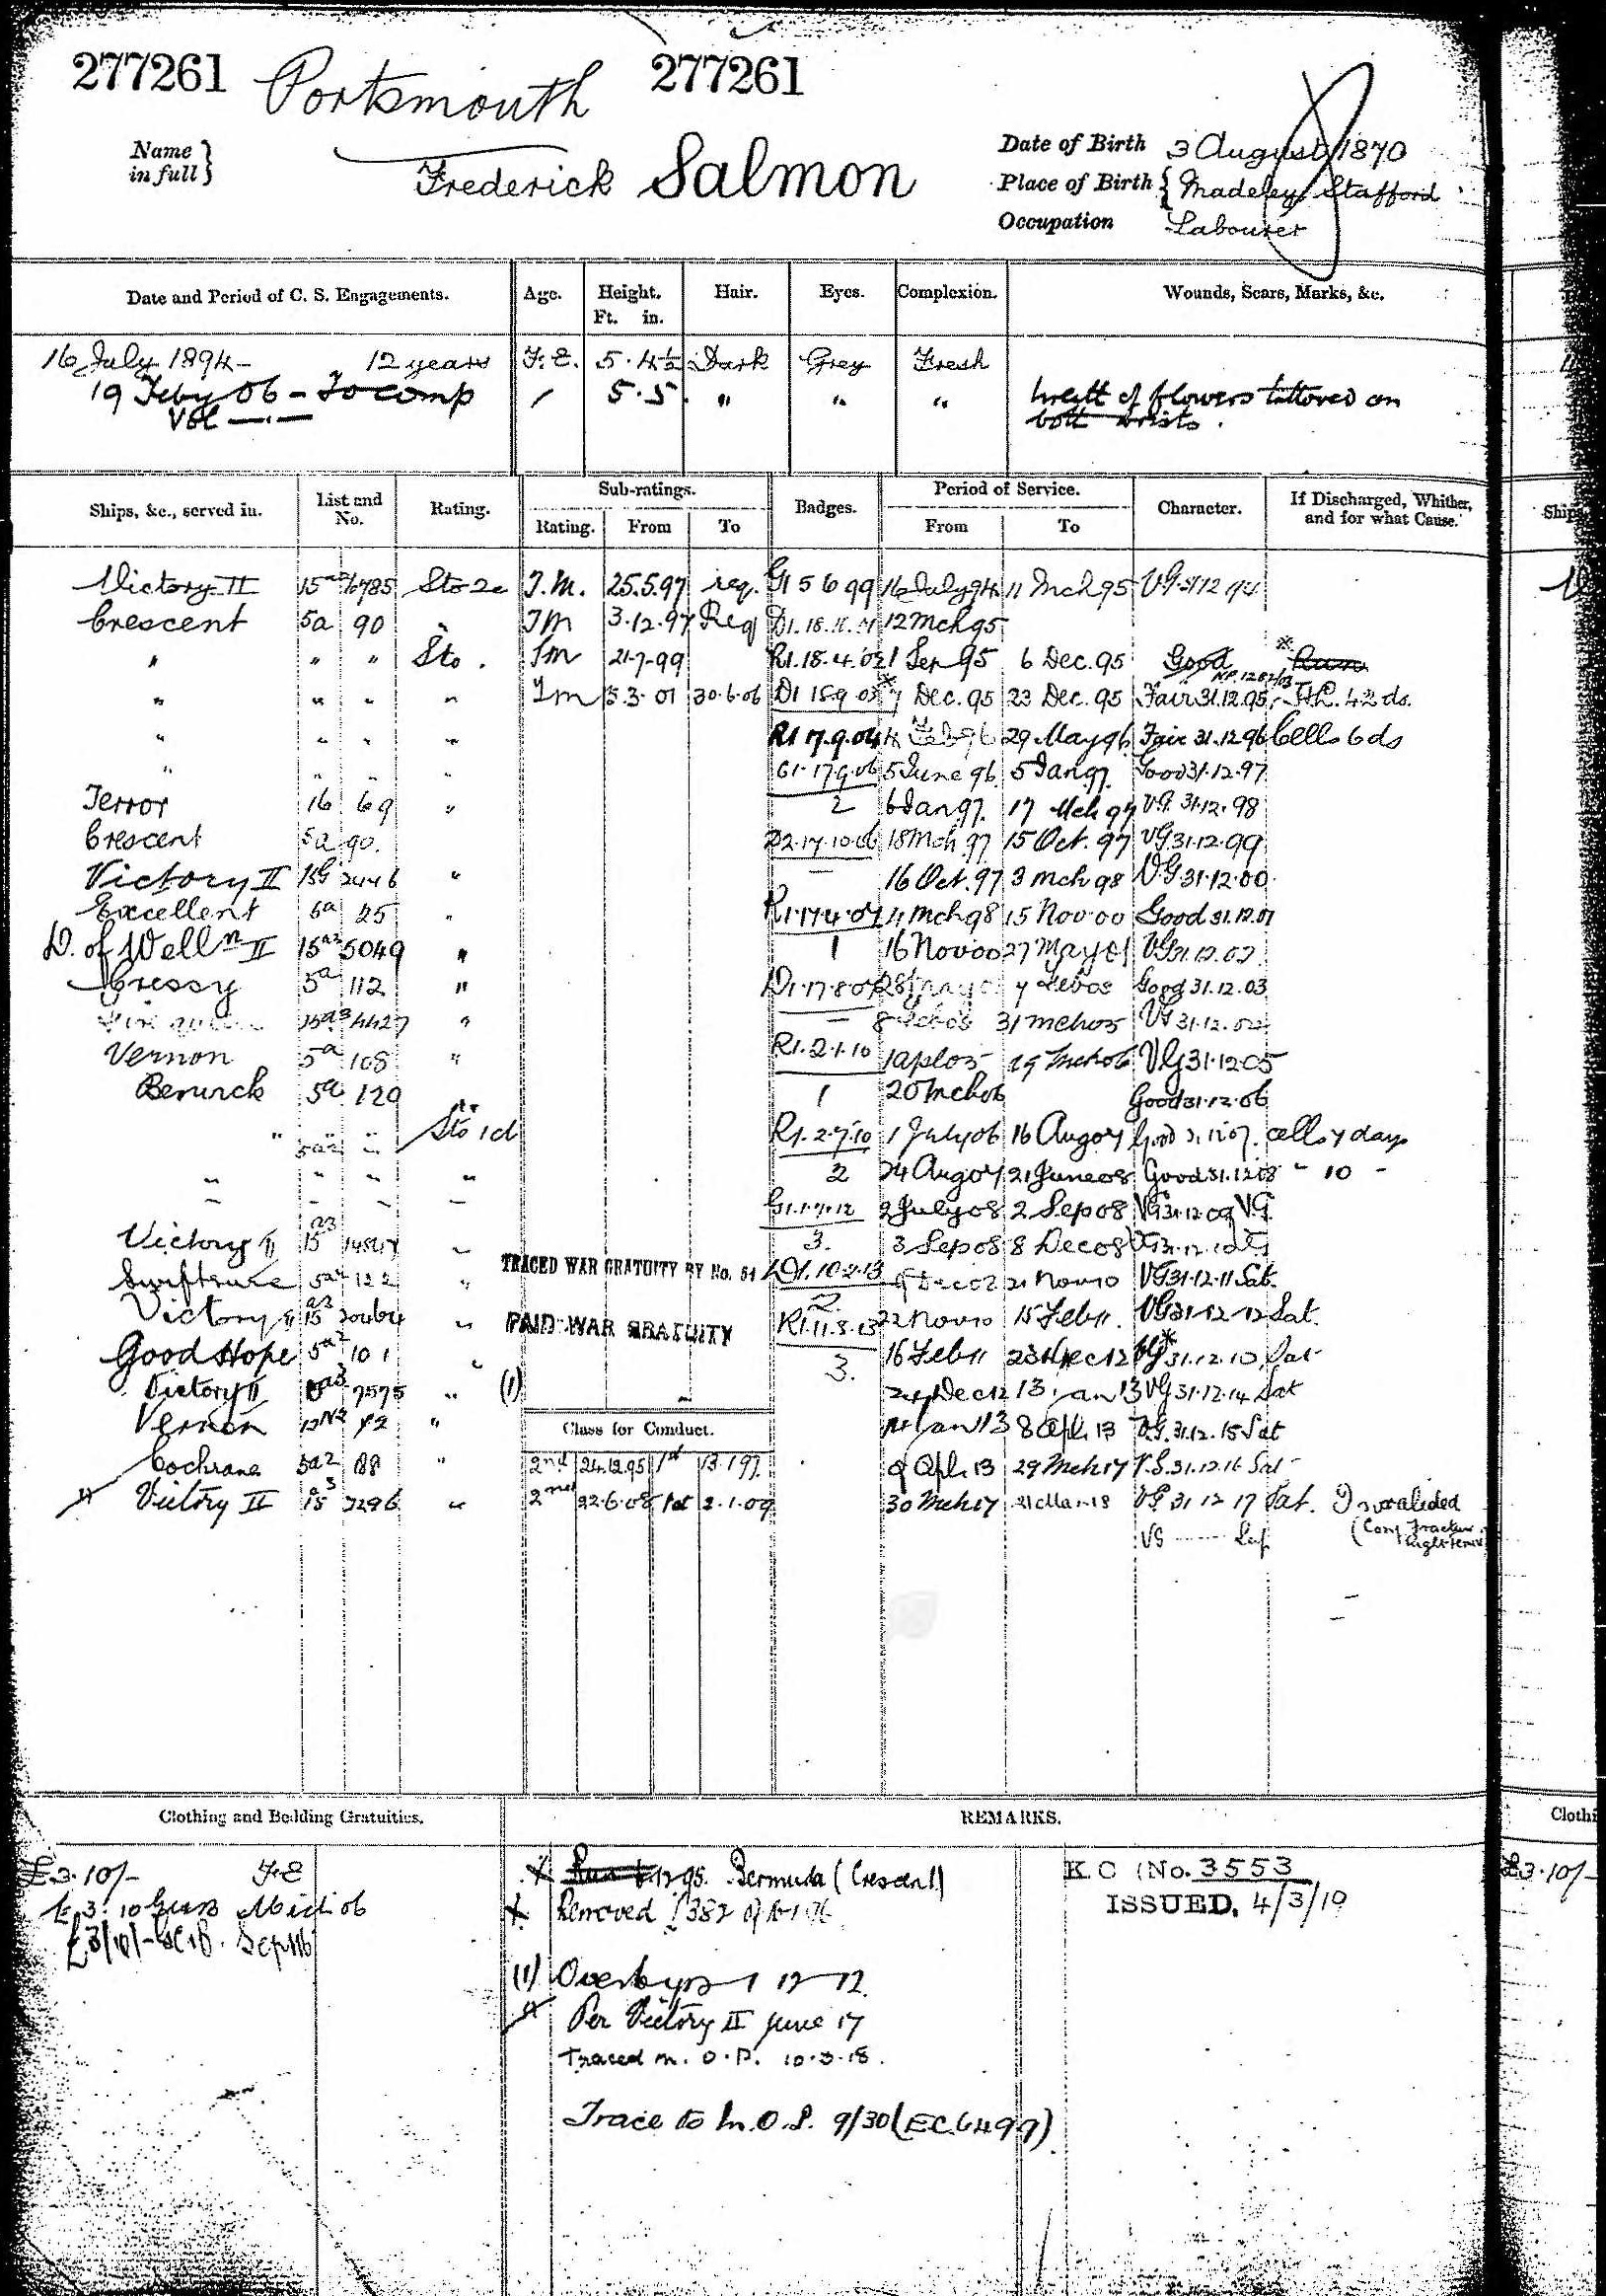 277261 Portsmouth 277261
Name in full } Frederick Salmon
Date of Birth 3 August 1870
Place of Birth { Madeley Stafford
Occupation Labourer
Date and Period of C. S. Engagements. Age. Height. Ft. in. Hair. Eyes. Complexion. Wounds, Scars, Marks, &c.
16 July 1894 - 12 years F.E. 5.4½ Dark Grey Fresh
19 Feby 06 - To comp / 5.5 " " " Wreath of flowers tattooed on
Vol both wrists.
Ships, &c., served in. List and No. Rating. Sub-ratings. Rating. From To Badges. Period of Service. From To Character. If Discharged, Whither, and for what Cause.
Victory II 15a2 6785 Sto 2c T.M. 25.5.97 req. G1 5 6 99 16 July 94 11 Mch 95 VG 31 12 94
Crescent 5a 90 " TM 3.12.97 Req 12 Mch 95
" " " Sto. Tm 21-7-99 R1.18.4.02 1 Sep 95 6 Dec. 95 Good Run
" " " " Tm 5.3.01 30.6.06 D1 18 9 03 7 Dec. 95 23 Dec. 95 Fair 31.12.95 42 ds.
" " " " R1 17.9.04 4 Feb 96 29 May 96 Fair 31.12.96 Cells 6 ds
" " " " G1.17.9.06 5 June 96 5 Jan 97 Good 31.12.97
Terror 16 69 " 2 6 Jan 97 17 Mch 97 VG 31.12.98
Crescent 5a 90 D2.17.10.06 18 Mch 97 15 Oct. 97 VG 31.12.99
Victory II 15G 2446 " — 16 Oct. 97 3 Mch 98 VG 31.12.00
Excellent 6a 25 " R1.17.4.07 4 Mch 98 15 Nov 00 Good 31.12.01
D. of Welln II 15a2 5049 " 1 16 Nov 00 27 May 01 VG 31.12.02
Cressy 5a 112 " D1.17.8.07 28 May 7 Feb 05 Good 31.12.03
15a3 4427 " — 8 Feb 05 31 Mch 05 VG 31.12.04
Vernon 5a 108 " R1.2.1.10 1 Apl 05 19 Mch 06 VG 31.12.05
Berwick 5a 129 " 1 20 Mch 06 Good 31.12.06
" 5a2 " Sto 1 cl R1.2.7.10 1 July 06 16 Aug 07 Good 31.12.07 cells 7 days
" " " " 2 24 Aug 07 21 June 08 Good 31.12.08 " 10 "
" " " " G1.1.7.12 2 July 08 2 Sep 08 VG 31.12.09 VG
Victory II 15a3 " 3. 3 Sep 08 8 Dec 08 VG 31.12.10
TRACED WAR GRATUITY BY No. 54
Swiftsure 5a2 122 " D1.10.2.13 9 Dec 08 21 Nov 10 VG 31.12.11 Sat.
Victory II 15a3 " 2 22 Nov 10 15 Feb 11 VG 31.12.12 Sat.
PAID WAR GRATUITY R1.11.8.13
Good Hope 5a2 101 " 3. 16 Feb 11 23 Dec 12 VG* 31.12.13 Sat
Victory II 15a3 7575 " (1) 24 Dec 12 13 Jan 13 VG 31.12.14 Sat
Vernon 42 " 14 Jan 13 8 Apl. 13 VG. 31.12.15 Sat
Class for Conduct.
Cochrane 5a2 88 " 2nd 24.12.95 1st 13.1.97 9 Apl. 13 29 Mch 17 V.G. 31.12.16 Sat
Victory II 15a3 7296 " 2nd 22.6.08 1st 2.1.09 30 Mch 17 21 Mar 18 VG 31 12 17 Sat. Invalided
VG (Comp Fracture Right Femur)
Clothing and Bedding Gratuities. REMARKS.
£3.10/- F.E
£3.10 Mch 06
Run 6.12.95. Bermuda (Crescent)
Removed
(1) 1 12 12
Per Victory II June 17
Traced M.O.P. 10.3.18.
Trace to M.O.P. 9/30 (EC.6499)
K C (No. 3553
ISSUED. 4/3/19
Ships
Clothi
£3.10/-